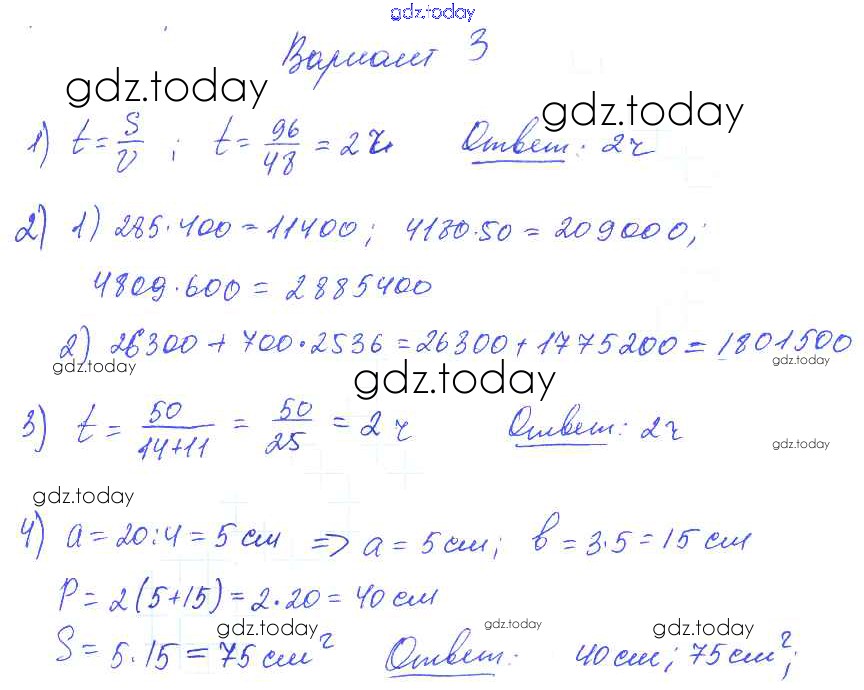 gdz.today
Вариант 3
gdz.today
gdz.today
1) t = S/V ; t = 96/48 = 2 ч. Ответ: 2 ч
2) 1) 285·400 = 11400; 4180·50 = 209000;
4809·600 = 2885400
2) 26300 + 700·2536 = 26300 + 1775200 = 1801500
gdz.today
gdz.today
gdz.today
3) t = 50/(14+11) = 50/25 = 2 ч Ответ: 2 ч
gdz.today
gdz.today
4) a = 20:4 = 5 см => a = 5 см; в = 3·5 = 15 см
P = 2(5+15) = 2·20 = 40 см
gdz.today
gdz.today
gdz.today
S = 5·15 = 75 см² Ответ: 40 см; 75 см²;